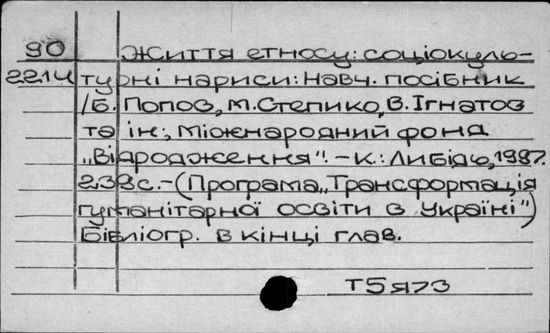 90 Життя етносу: соціокуль-
2214 турні нариси: Навч. посібник
/Б. Попов, М. Степико, В. Ігнатов
та ін.; Міжнародний фонд
„Відродження". - К.: Либідь, 1997.
239 с. - (Програма „Трансформація
гуманітарної освіти в Україні")
Бібліогр. в кінці глав.
Т5Я73